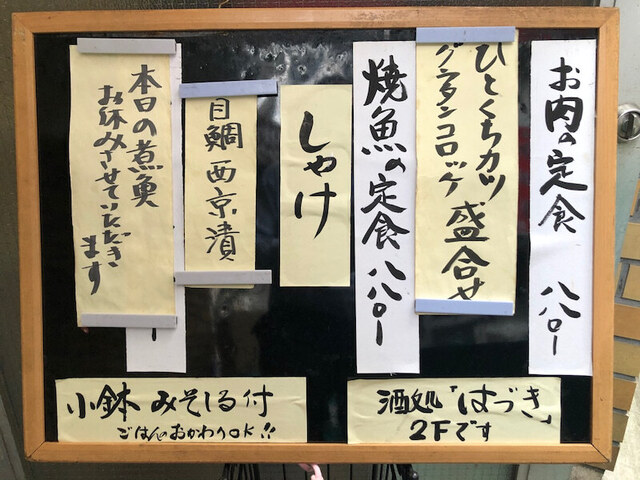 お肉の定食 八八〇ー
ひとくちカツ
グラタンコロッケ 盛合せ
焼魚の定食 八八〇ー
しゃけ
目鯛 西京漬
本日の煮魚
お休みさせていただき
ます
小鉢 みそしる付
ごはんのおかわりOK!!
酒処「はづき」
2Fです